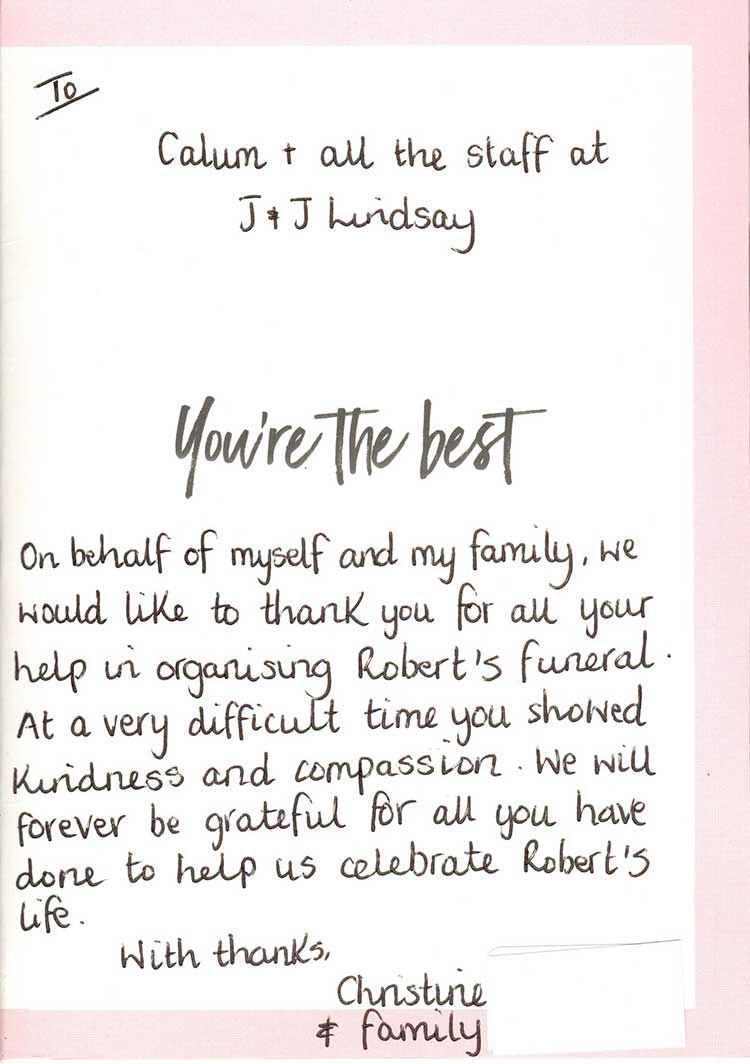 To
Calum + all the staff at
J & J Lindsay
You're the best
On behalf of myself and my family, we
would like to thank you for all your
help in organising Robert's funeral.
At a very difficult time you showed
kindness and compassion. We will
forever be grateful for all you have
done to help us celebrate Robert's
life.
With thanks,
Christine
& family